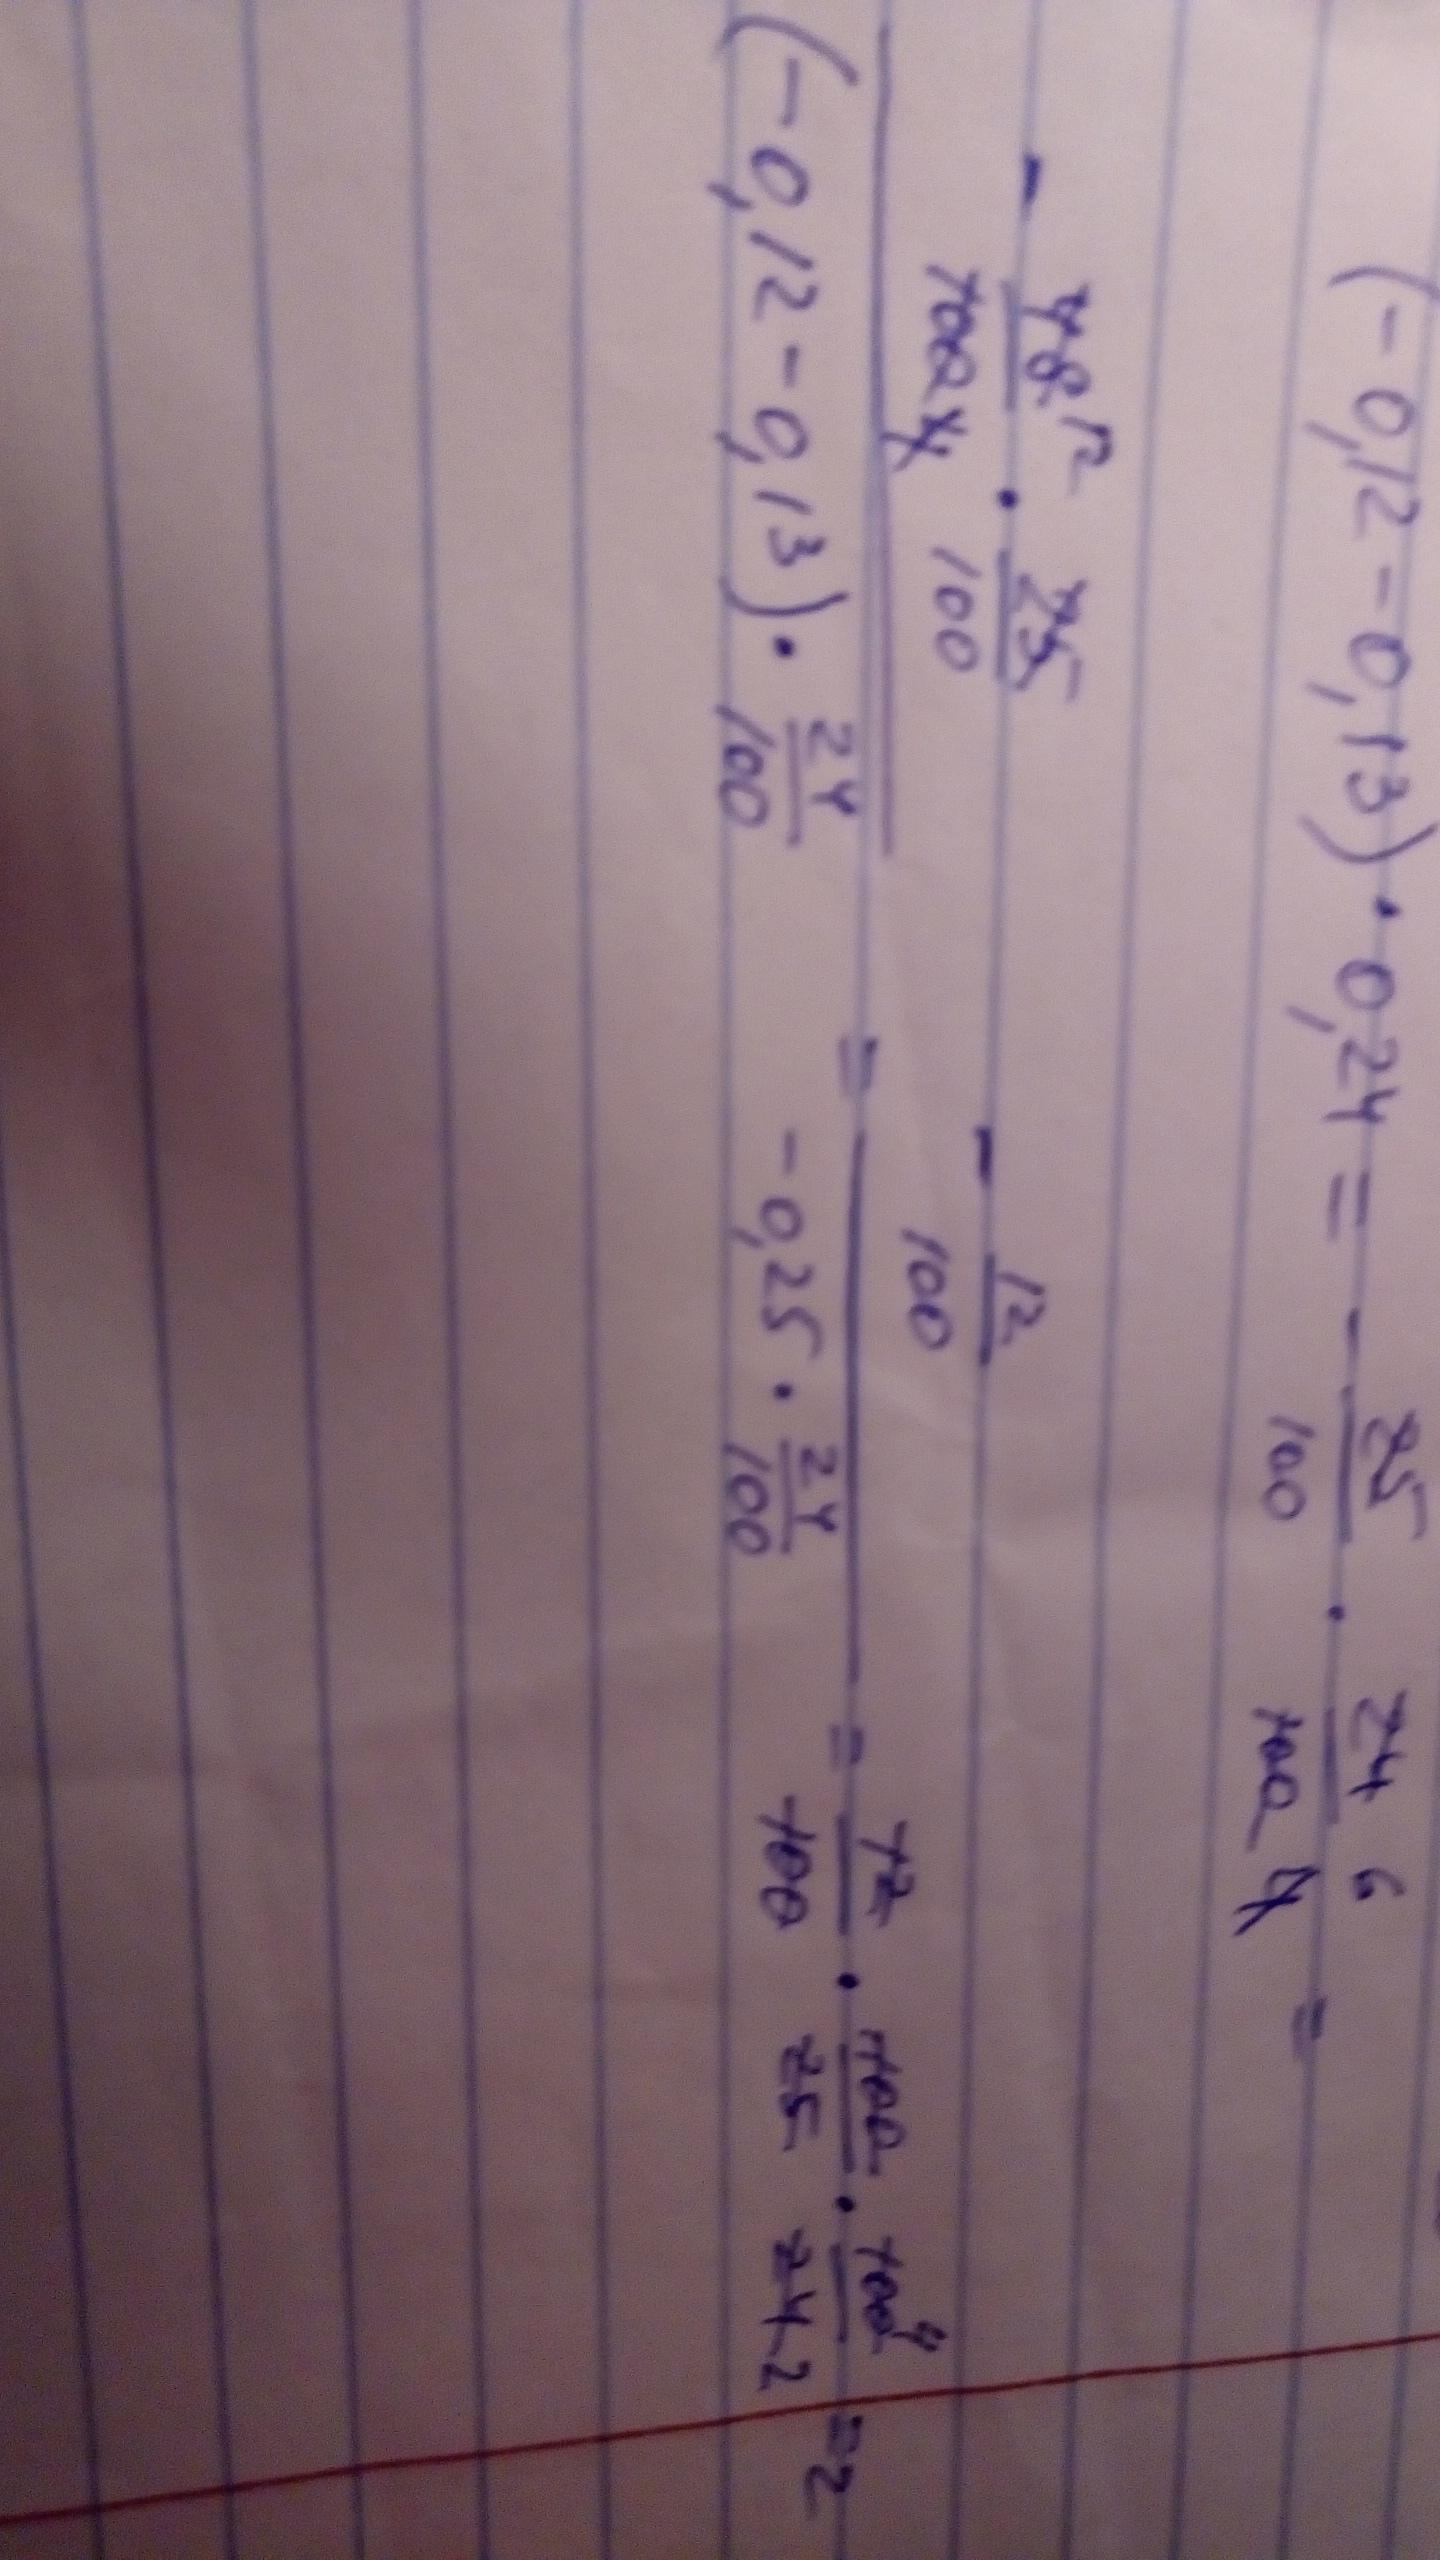 (-0,12-0,13)·0,24 = - 25/100 · 24/100 6/4 =
- 48/100 12/4 · 25/100
- 12/100
(-0,12-0,13)· 24/100 = -0,25 · 24/100 = 12/100 · 100/25 · 100/24 4/2 = 2